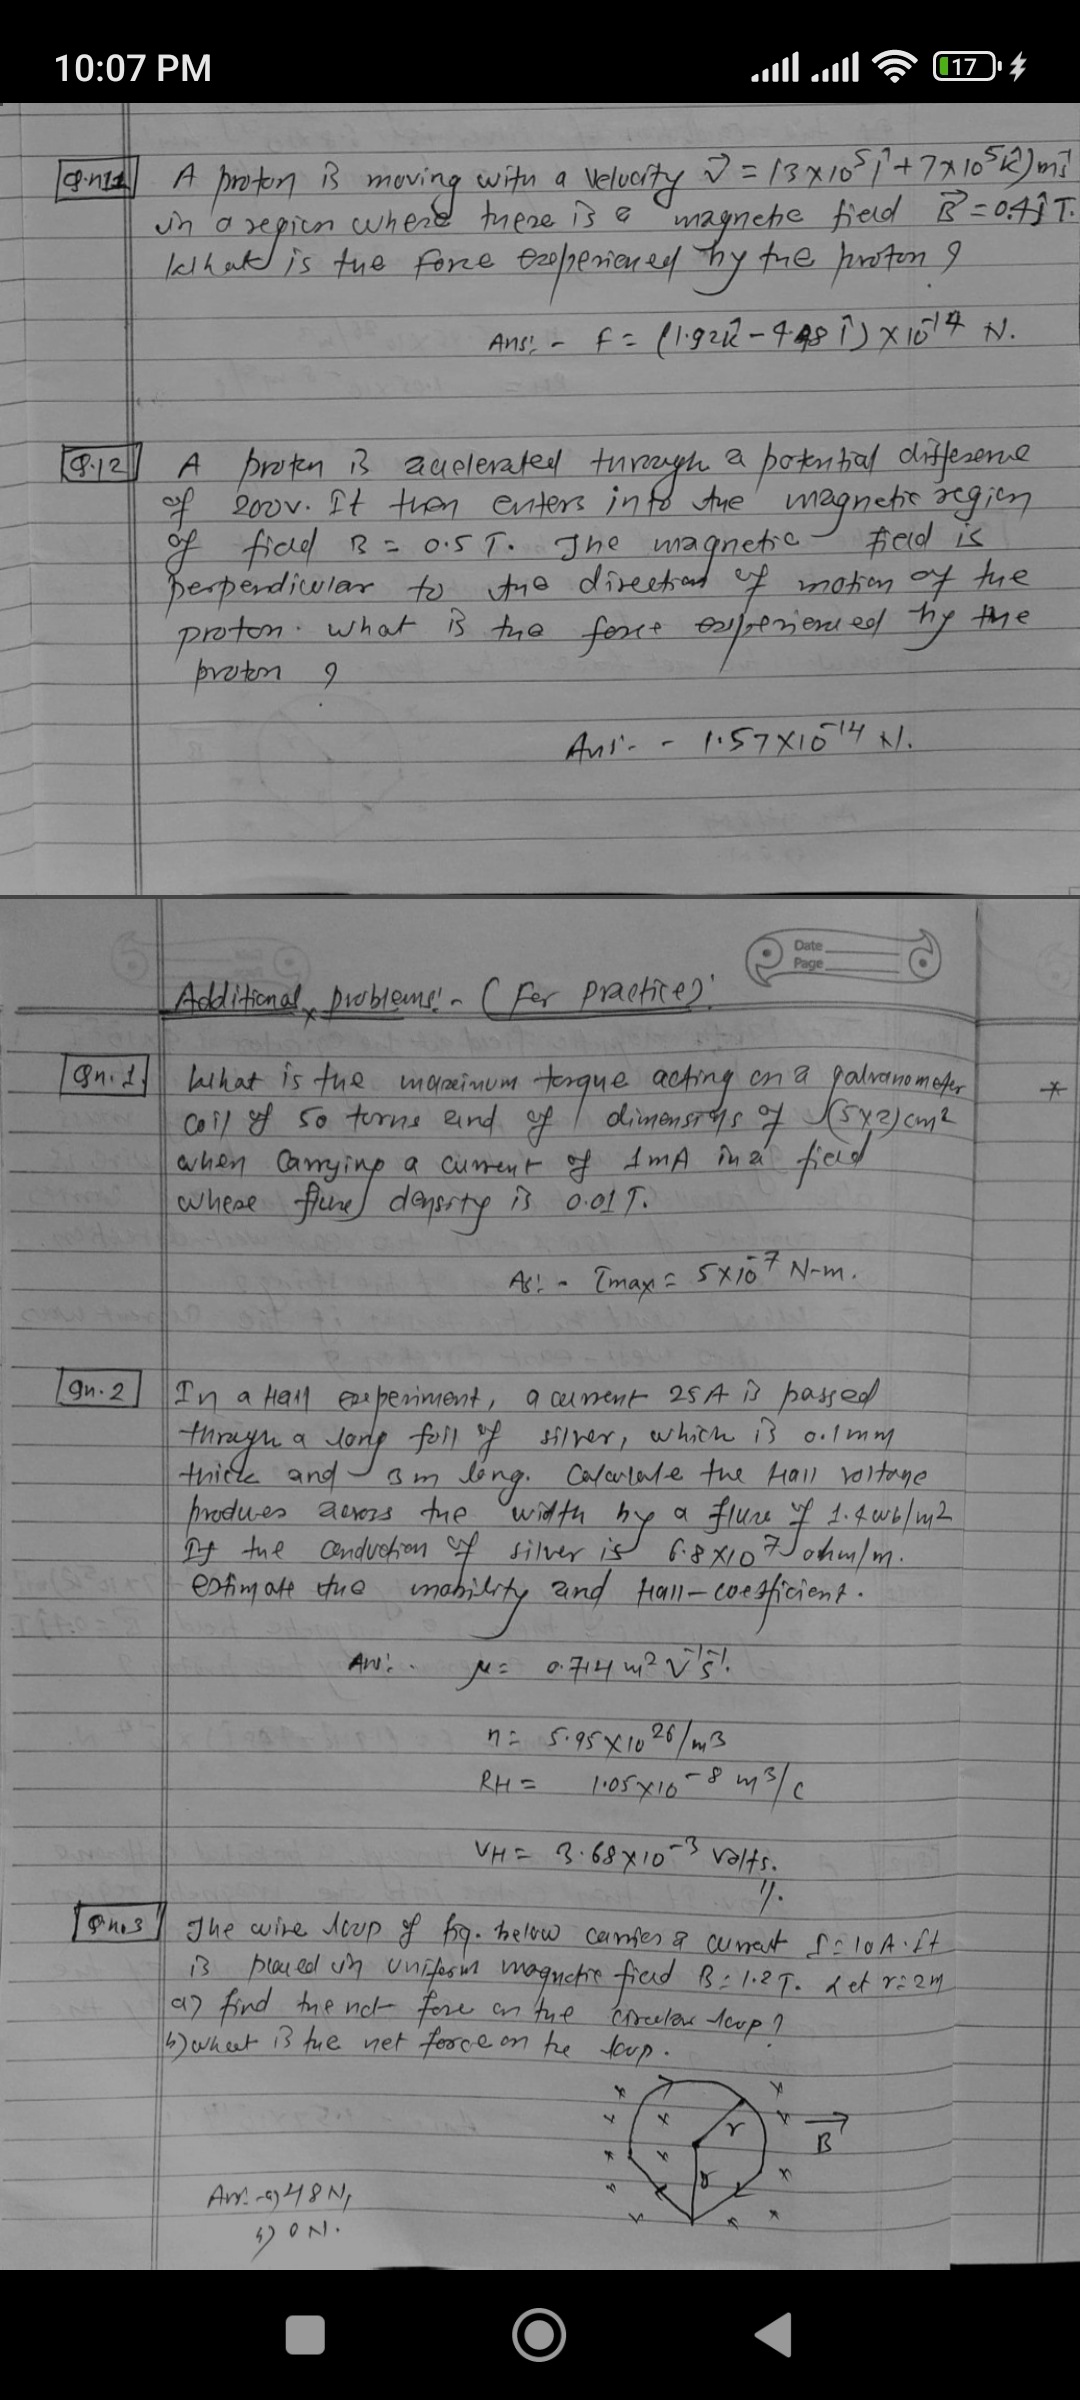 10:07 PM
17
Q.n11 A proton is moving with a velocity v⃗ = (3×10⁵î + 7×10⁵k̂) ms⁻¹
in a region where there is a magnetic field B⃗ = 0.4ĵ T.
What is the force experienced by the proton ?
Ans:- F = (1.92k̂ - 4.48 î) × 10⁻¹⁴ N.
Q.12 A proton is accelerated through a potential difference
of 200V. It then enters into the magnetic region
of field B = 0.5 T. The magnetic field is
perpendicular to the direction of motion of the
proton. What is the force experienced by the
proton ?
Ans:- - 1.57×10⁻¹⁴ N.
Date
Page
Additional problems:- (For practice):
Qn. 1. What is the maximum torque acting on a galvanometer
coil of 50 turns and of dimensions of (5×2) cm²
when carrying a current of 1mA in a field
whose flux density is 0.01 T.
As:- τmax = 5×10⁻⁷ N-m.
Qn. 2 In a Hall experiment, a current 25A is passed
through a long foil of silver, which is 0.1mm
thick and 3m long. Calculate the Hall voltage
produces across the width by a flux of 1.4 wb/m²
If the conduction of silver is 6.8×10⁷ ohm/m.
estimate the mobility and Hall-coefficient.
Ans:- μ = 0.714 m² V⁻¹S⁻¹.
n = 5.95×10²⁶/m³
RH = 1.05×10⁻⁸ m³/c
VH = 3.68×10⁻³ Volts.
Qn.3 The wire loop of fig. below carries a current I=10A. It
is placed in uniform magnetic field B=1.2T. Let r=2m
a) find the net force on the circular loop?
b) what is the net force on the loop.
r
B
r
Ans:- a) 48 N,
b) 0 N.